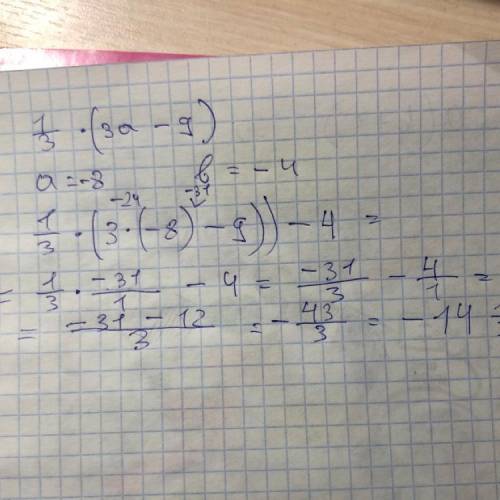 1/3 · (3a - 9)
a = -8 b = -4
-24 -31
1/3 · (3 · (-8) - 9)) - 4 =
= 1/3 · -31/1 - 4 = -31/3 - 4/1 =
= -31 - 12/3 = - 43/3 = - 14